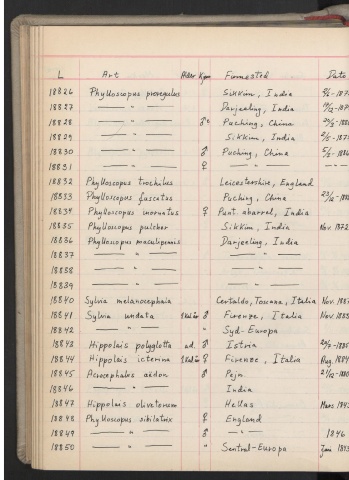 L Art Alder Kjøn Funnsted Date
18826 Phylloscopus proregulus Sikkim, India
18827 — " — Darjeeling, India
18828 — " — Puching, China
18829 — " — Sikkim, India
18830 — " — ♂ Puching, China
18831 — " — ♀ — " —
18832 Phylloscopus trochilus Leicestershire, England
18833 Phylloscopus fuscatus Puching, China
18834 Phylloscopus inornatus ♀ India
18835 Phylloscopus pulcher Sikkim, India Nov. 1872
18836 Phylloscopus maculipennis Darjeeling, India
18837 — " — — " —
18838 — " — — " —
18839 — " — — " —
18840 Sylvia melanocephala Certaldo, Toscana, Italia Nov. 188
18841 Sylvia undata ♂ Firenze, Italia Nov. 188
18842 — " — " Syd-Europa
18843 Hippolais polyglotta ad. ♂ Istria
18844 Hippolais icterina ♀ Firenze, Italia Aug. 184
18845 Acrocephalus aëdon ♂
18846 — " — India
18847 Hippolais olivetorum Hellas
18848 Phylloscopus sibilatrix ♀ England
18849 — " — ♂ — " — 1846
18850 — " — " Sentral-Europa